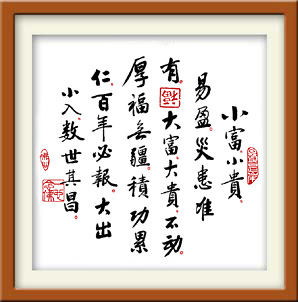 小富小貴
易盈災患准
有大富大貴不动
厚福无疆積功累
仁百年必報大出
小入数世其昌